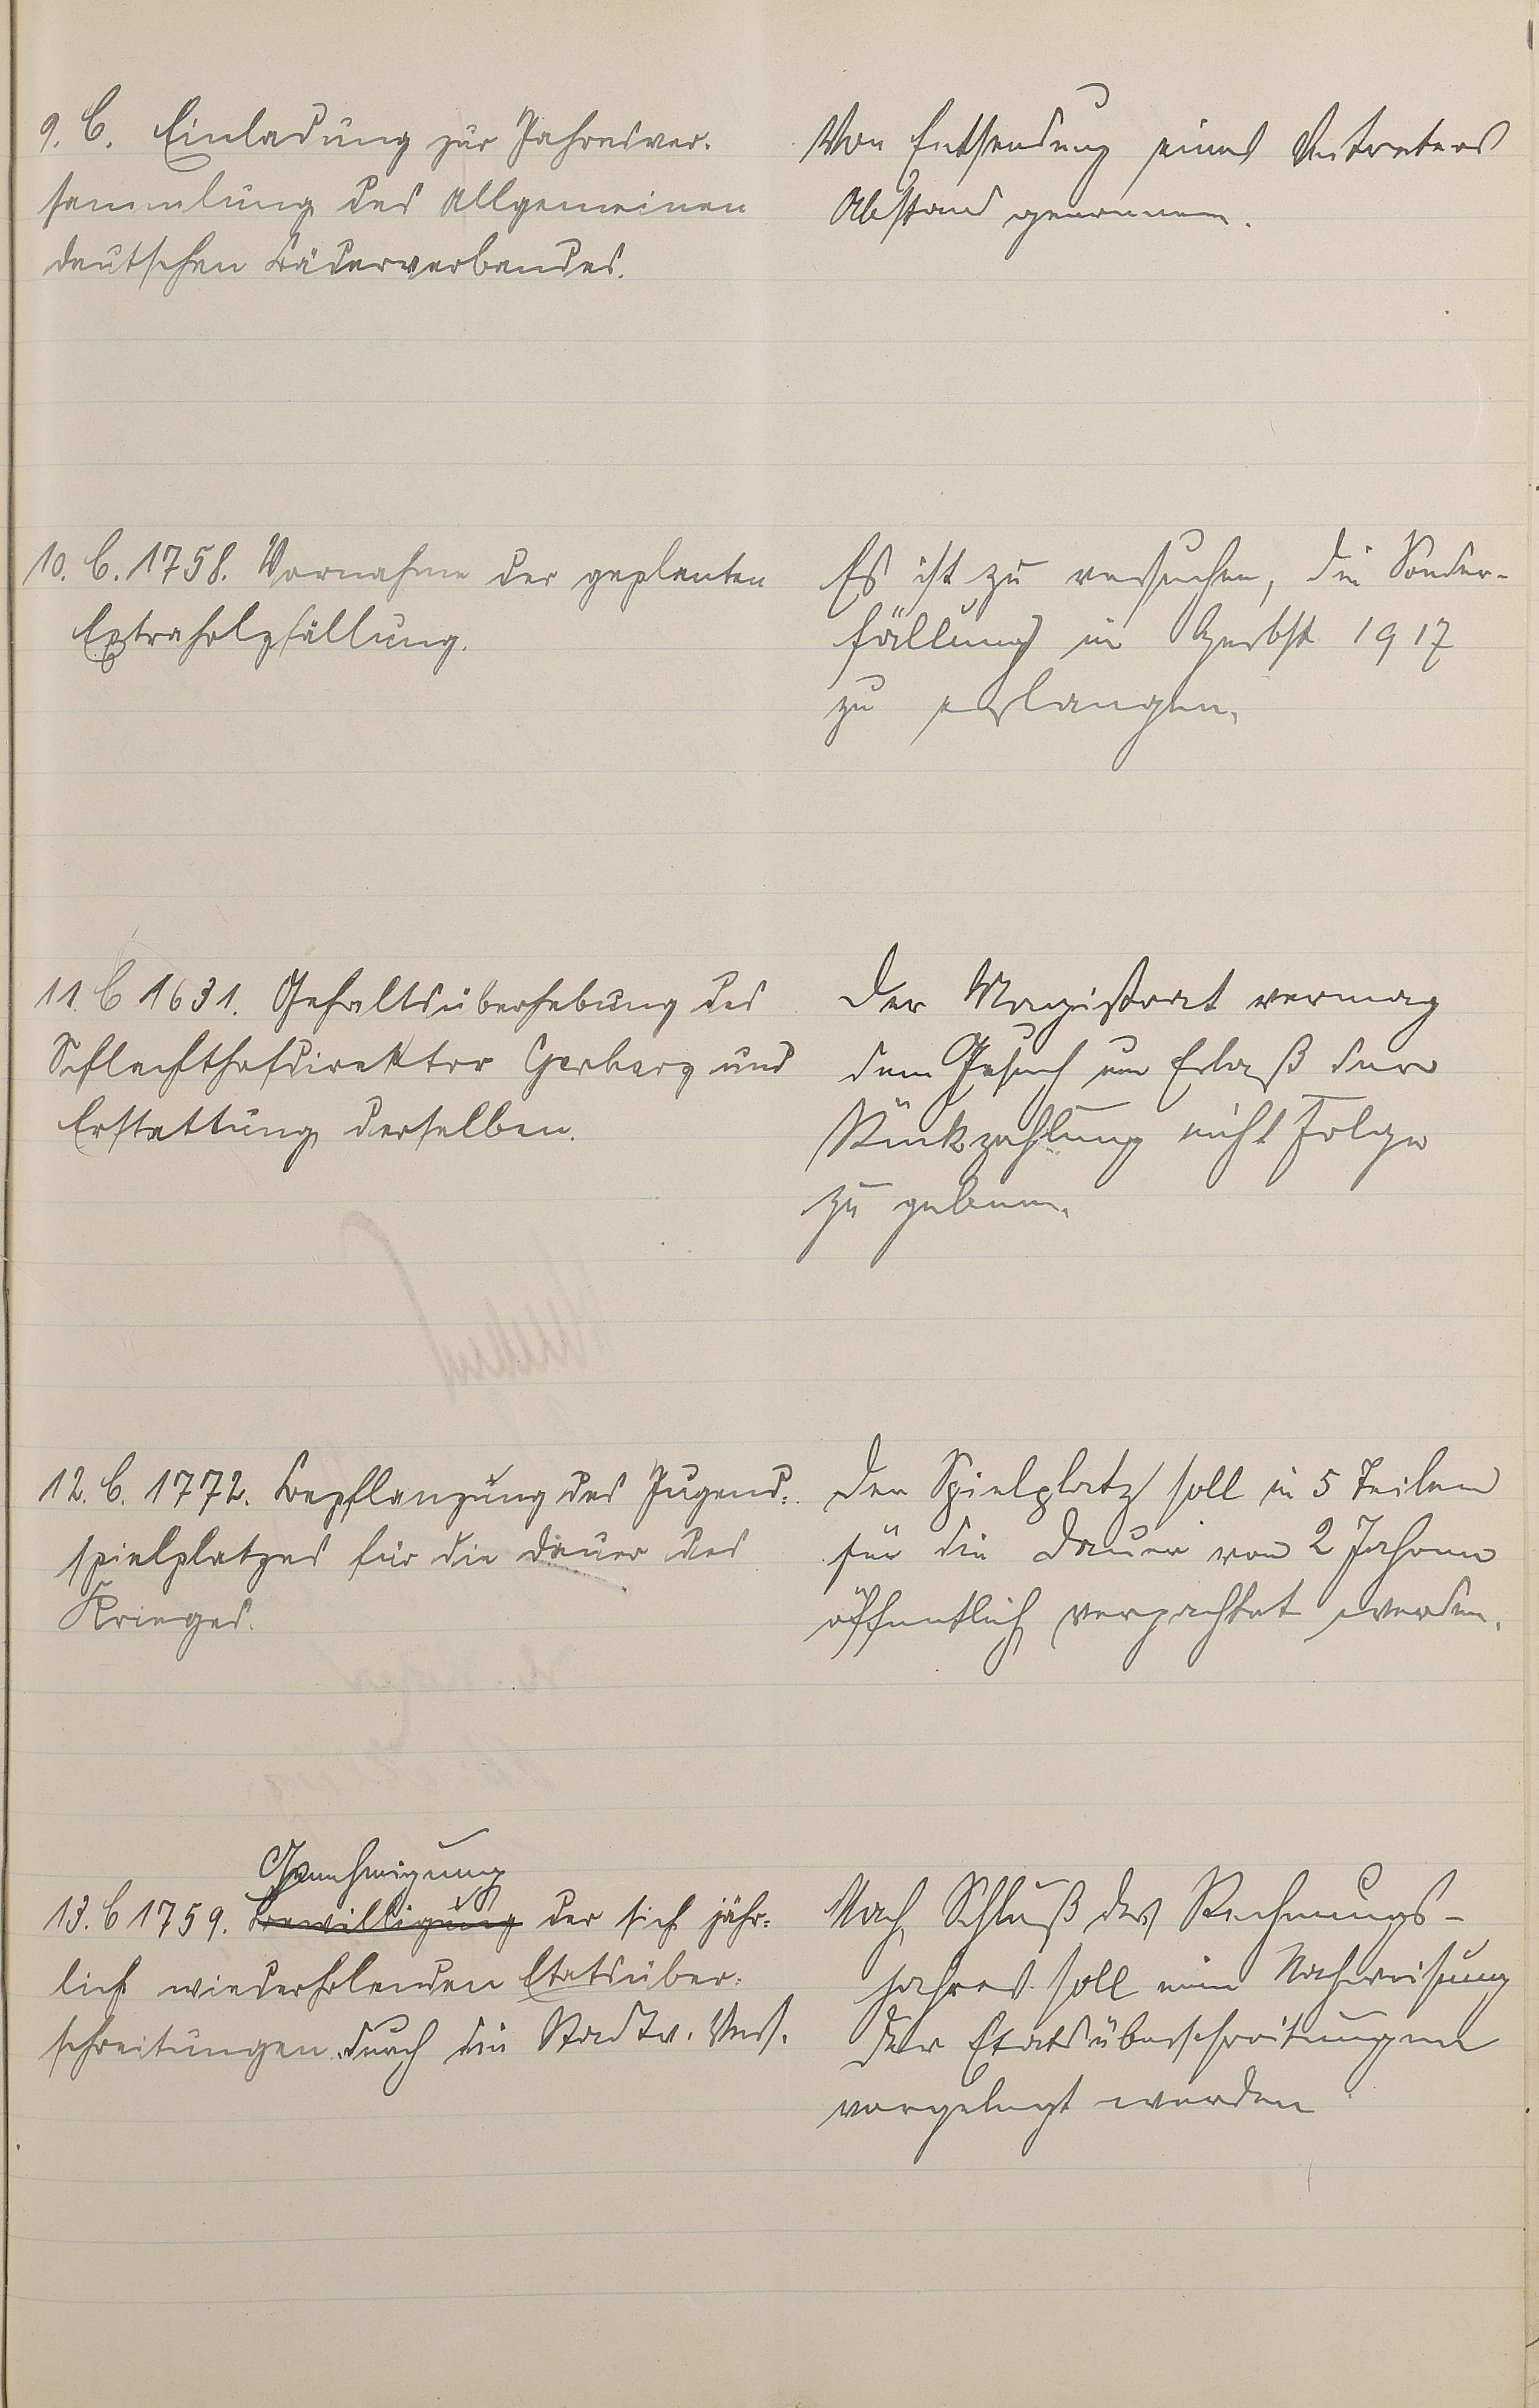 9. C. Einladung zur Jahresver-
sammlung des Allgemeinen
deutschen Bäderverbandes.
Von Entsendung eines Vertreters
Abstand genommen.
10. C. 1758. Vornahme der geplanten
Extraholzfällung.
Es ist zu versuchen, die Sonder-
fällung im Herbst 1917
zu erlangen.
11. C 1631. Gehaltsüberhebung des
Schlachthofdirektor Gerharz und
Erstattung derselben.
Der Magistrat vermag
dem Gesuch um Erlaß der
Rückzahlung nicht Folge
zu geben.
12. C. 1772. Bepflanzung des Jugend-
spielplatzes für die Dauer des
Krieges.
Der Spielplatz soll in 5 Teilen
für die Dauer von 2 Jahren
öffentlich verpachtet werden.
Genehmigung
13. C 1759. Bewilligung der sich jähr-
lich wiederholenden Etatsüber-
schreitungen durch die Stadtv. Vers.
Nach Schluß des Rechnungs-
jahres soll eine Nachweisung
der Etatsüberschreitungen
vorgelegt werden